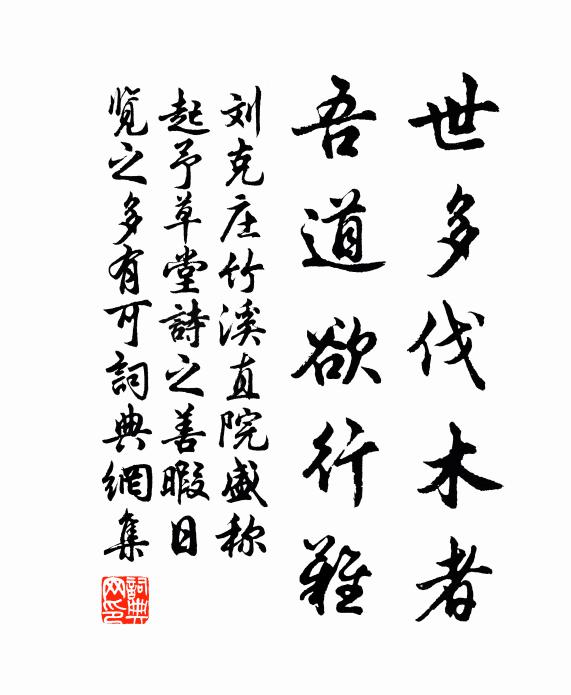 世多伐木者
吾道欲行難
刘克庄竹溪直院盛称
起予草堂詩之善暇日
览之多有可詞典網集